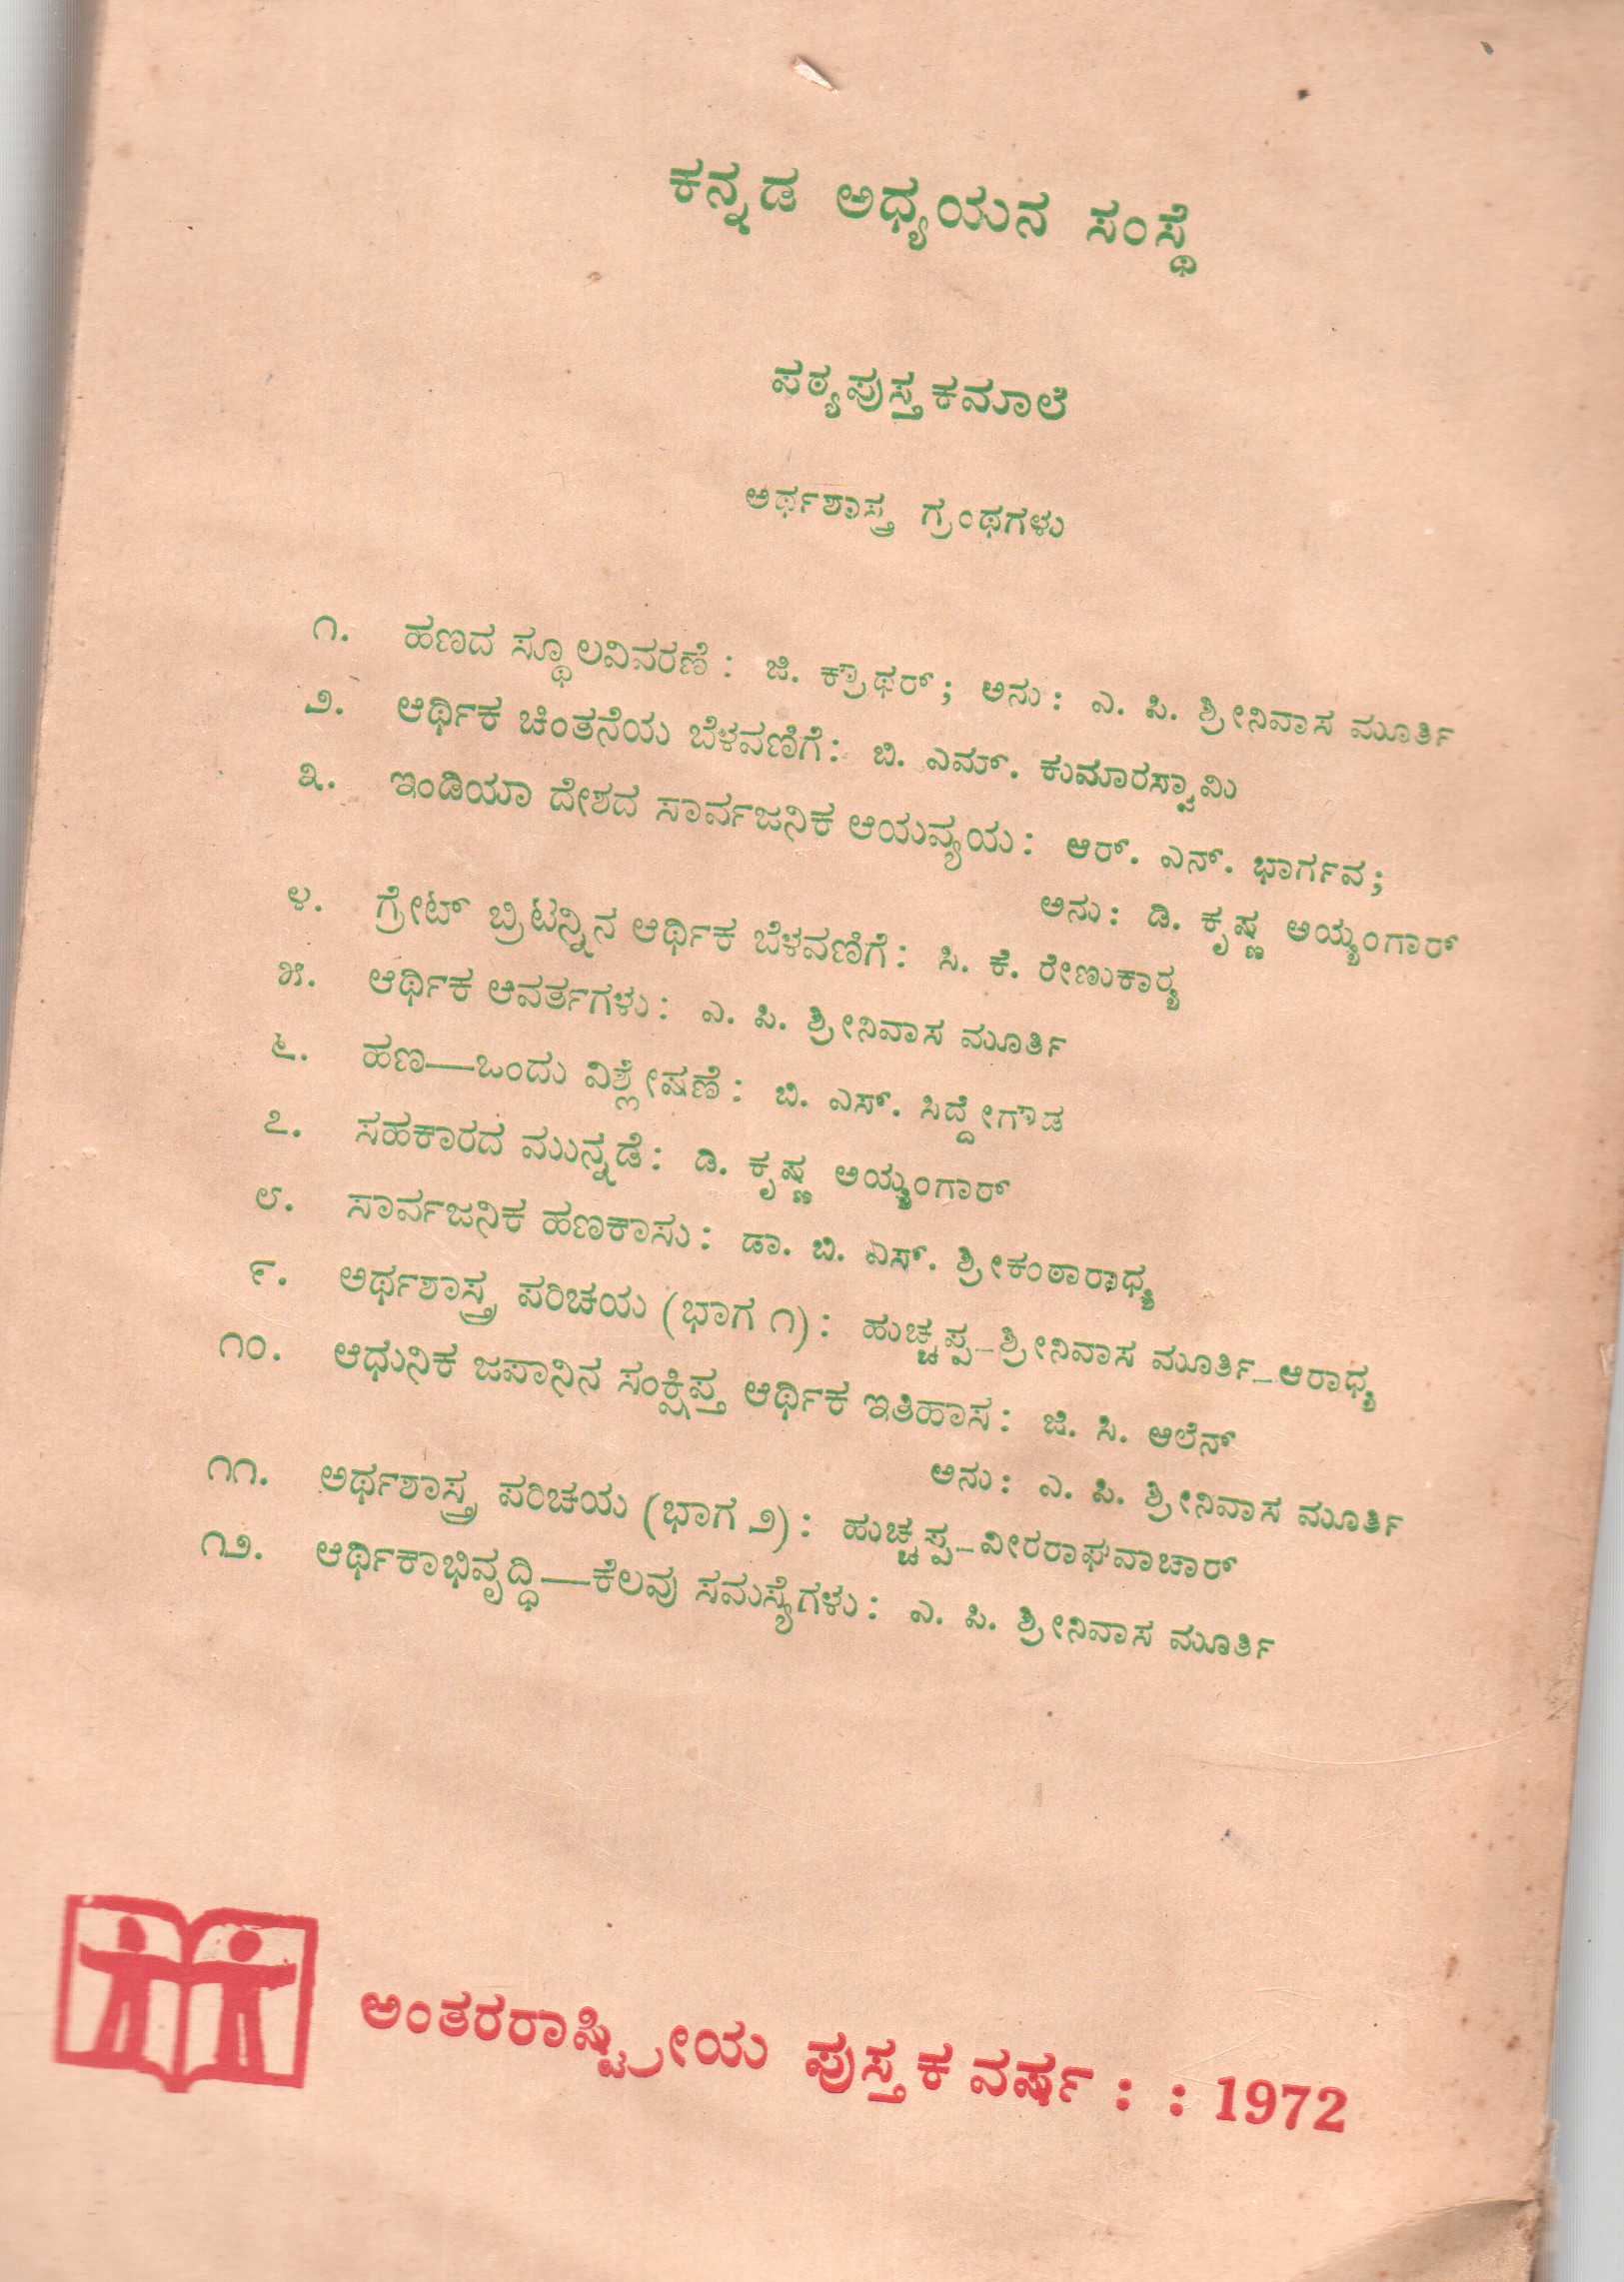 ಕನ್ನಡ ಅಧ್ಯಯನ ಸಂಸ್ಥೆ
ಪಠ್ಯಪುಸ್ತಕಮಾಲೆ
ಅರ್ಥಶಾಸ್ತ್ರ ಗ್ರಂಥಗಳು
೧. ಹಣದ ಸ್ಥೂಲವಿವರಣೆ : ಜಿ. ಕ್ರೌಥರ್ ; ಅನು : ಎ. ಪಿ. ಶ್ರೀನಿವಾಸ ಮೂರ್ತಿ
೨. ಆರ್ಥಿಕ ಚಿಂತನೆಯ ಬೆಳವಣಿಗೆ : ಬಿ. ಎಮ್. ಕುಮಾರಸ್ವಾಮಿ
೩. ಇಂಡಿಯಾ ದೇಶದ ಸಾರ್ವಜನಿಕ ಆಯವ್ಯಯ : ಆರ್. ಎನ್. ಭಾರ್ಗವ ;
ಅನು : ಡಿ. ಕೃಷ್ಣ ಅಯ್ಯಂಗಾರ್
೪. ಗ್ರೇಟ್ ಬ್ರಿಟನ್ನಿನ ಆರ್ಥಿಕ ಬೆಳವಣಿಗೆ : ಸಿ. ಕೆ. ರೇಣುಕಾರ್‍ಯ
೫. ಆರ್ಥಿಕ ಆವರ್ತಗಳು : ಎ. ಪಿ. ಶ್ರೀನಿವಾಸ ಮೂರ್ತಿ
೬. ಹಣ—ಒಂದು ವಿಶ್ಲೇಷಣೆ : ಬಿ. ಎಸ್. ಸಿದ್ದೇಗೌಡ
೭. ಸಹಕಾರದ ಮುನ್ನಡೆ : ಡಿ. ಕೃಷ್ಣ ಅಯ್ಯಂಗಾರ್
೮. ಸಾರ್ವಜನಿಕ ಹಣಕಾಸು : ಡಾ. ಬಿ. ಎಸ್. ಶ್ರೀಕಂಠಾರಾಧ್ಯ
೯. ಅರ್ಥಶಾಸ್ತ್ರ ಪರಿಚಯ (ಭಾಗ ೧) : ಹುಚ್ಚಪ್ಪ-ಶ್ರೀನಿವಾಸ ಮೂರ್ತಿ-ಆರಾಧ್ಯ
೧೦. ಆಧುನಿಕ ಜಪಾನಿನ ಸಂಕ್ಷಿಪ್ತ ಆರ್ಥಿಕ ಇತಿಹಾಸ : ಜಿ. ಸಿ. ಆಲೆನ್
ಅನು : ಎ. ಪಿ. ಶ್ರೀನಿವಾಸ ಮೂರ್ತಿ
೧೧. ಅರ್ಥಶಾಸ್ತ್ರ ಪರಿಚಯ (ಭಾಗ ೨) : ಹುಚ್ಚಪ್ಪ-ವೀರರಾಘವಾಚಾರ್
೧೨. ಆರ್ಥಿಕಾಭಿವೃದ್ಧಿ—ಕೆಲವು ಸಮಸ್ಯೆಗಳು : ಎ. ಪಿ. ಶ್ರೀನಿವಾಸ ಮೂರ್ತಿ
ಅಂತರರಾಷ್ಟ್ರೀಯ ಪುಸ್ತಕ ವರ್ಷ : : 1972